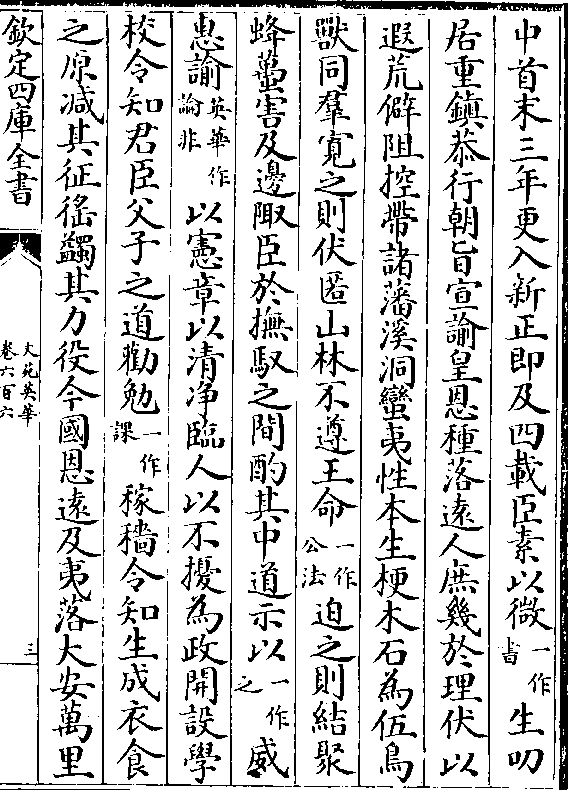 中首末三年更入新正即及四載臣素以微一作書生叨
居重鎮恭行朝旨宣諭皇恩種落遠人庶幾於理伏以
遐荒僻阻控帶諸藩溪洞蠻夷性本生梗木石為伍鳥
獸同羣寛之則伏匿山林不遵王命一作公法迫之則結聚
蜂蠆害及邊陬臣於撫馭之間酌其中道示以一作之威
惠諭英華作論非以憲章以清净臨人以不擾為政開設學
校令知君臣父子之道勸勉一作課稼穡令知生成衣食
之原减其征徭蠲其力役今國恩遠及夷落大安萬里
欽定四庫全書
文苑英華
卷六百六
三